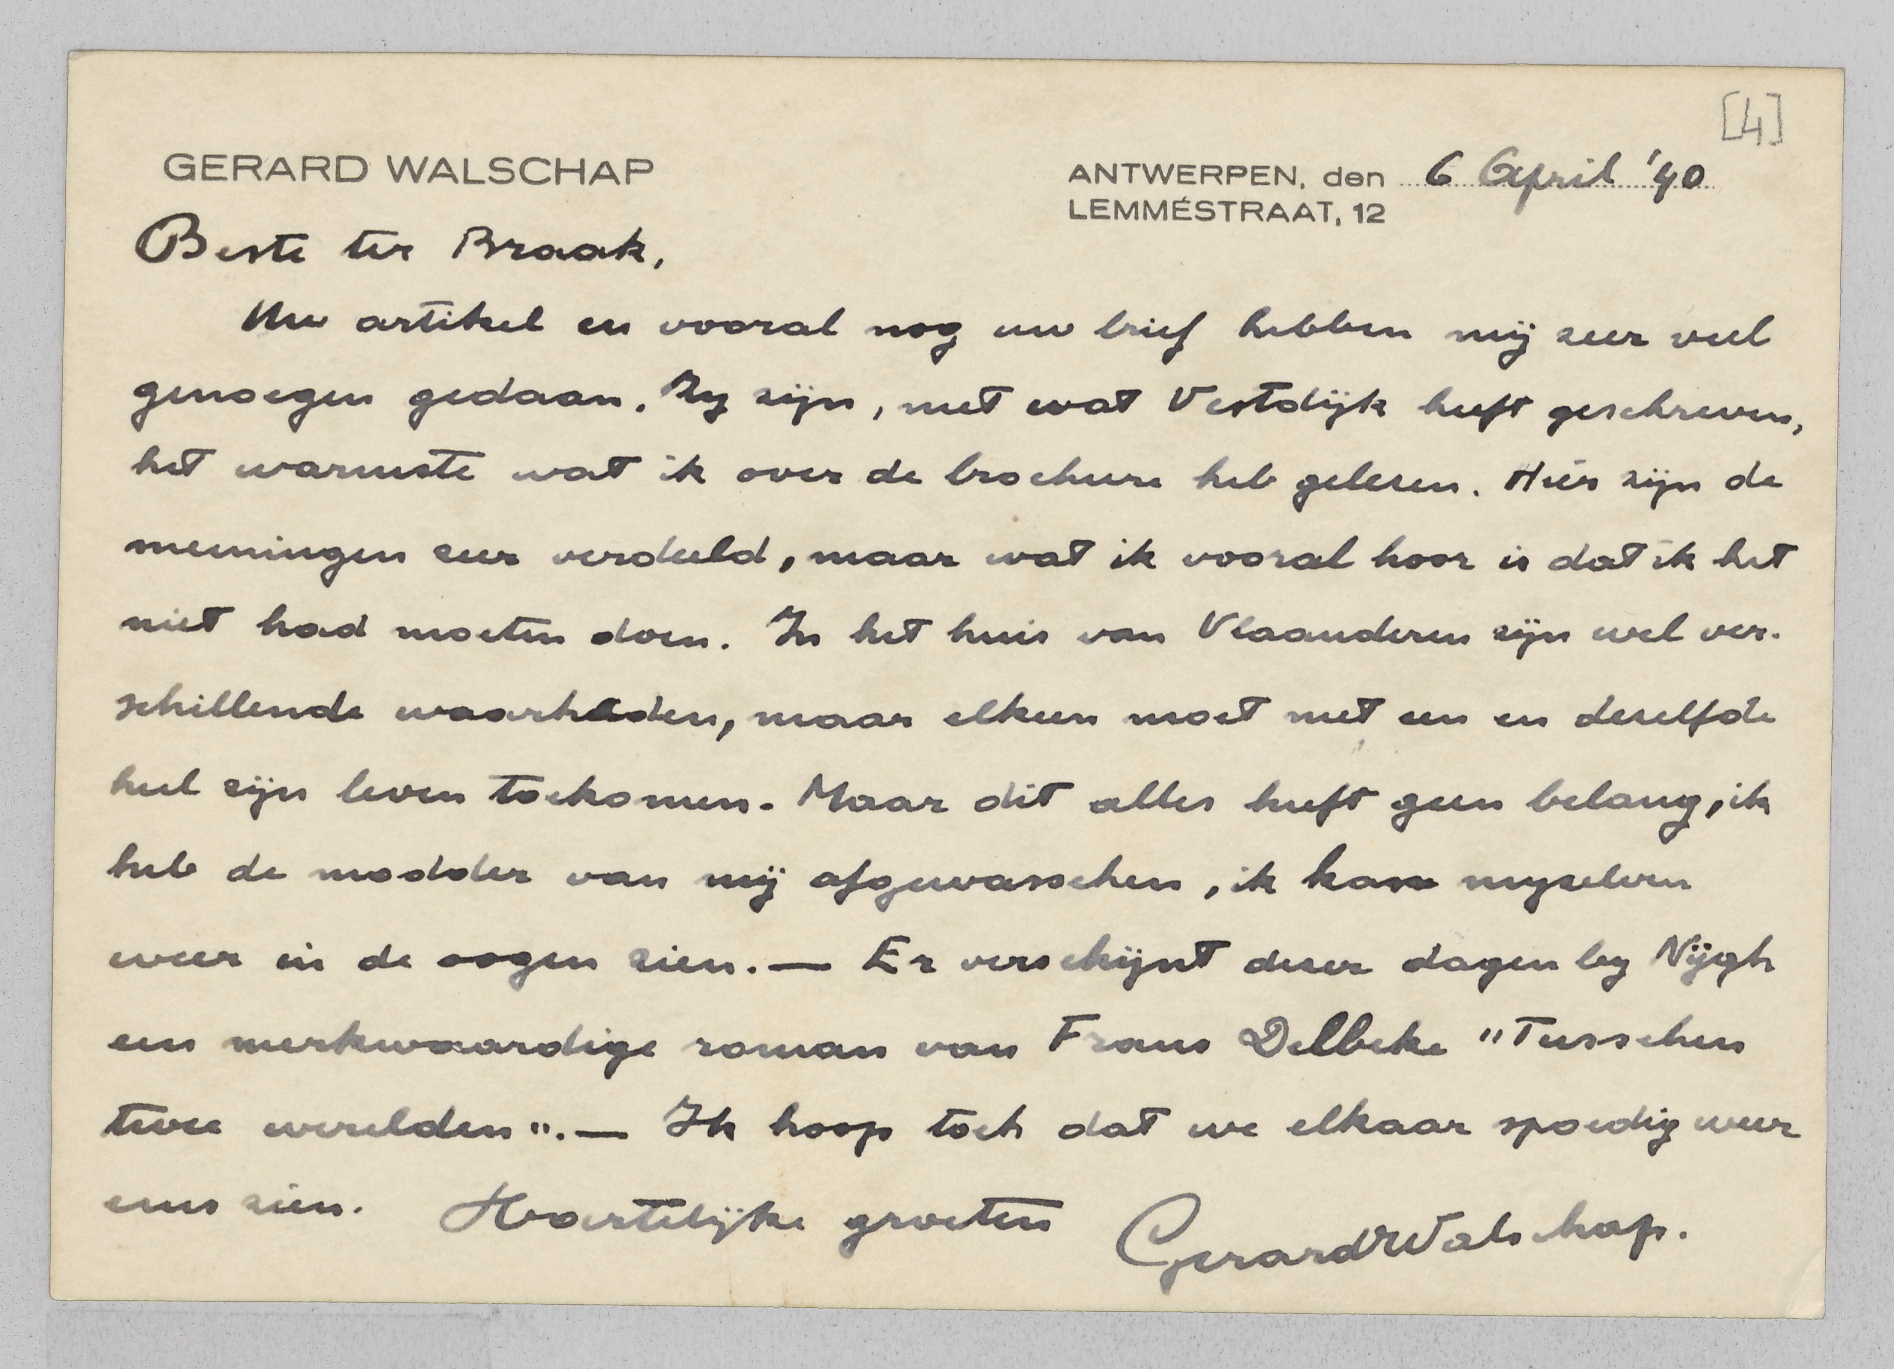 [4]
GERARD WALSCHAP
ANTWERPEN, den 6 April '40
LEMMÉSTRAAT, 12
Beste ter Braak,
Uw artikel en vooral nog uw brief hebben mij zeer veel
genoegen gedaan. Zij zijn, met wat Vestdijk heeft geschreven,
het warmste wat ik over de brochure heb gelezen. Hier zijn de
meeningen zeer verdeeld, maar wat ik vooral hoor is dat ik het
niet had moeten doen. In het huis van Vlaanderen zijn wel ver-
schillende waarheden, maar elkeen moet met een en dezelfde
heel zijn leven toekomen. Maar dit alles heeft geen belang, ik
heb de modder van mij afgewasschen, ik kan myzelven
weer in de oogen zien. — Er verschijnt dezer dagen by Nijgh
een merkwaardige roman van Frans Delbeke "Tusschen
twee werelden". — Ik hoop toch dat we elkaar spoedig weer
eens zien. Hartelijke groeten
Gerard Walschap.